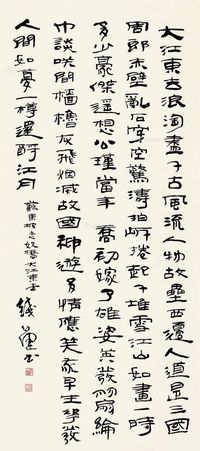 大江東去浪淘盡千古風流人物故壘西邊人道是三國
周郎赤壁亂石穿空驚濤拍岸捲起千堆雪江山如畫一時
多少豪傑遙想公瑾當年小喬初嫁了雄姿英發羽扇綸
巾談笑間檣櫓灰飛煙滅故國神遊多情應笑我早生華髮
人間如夢一樽還酹江月
蘇東坡念奴嬌大江東去
錢 書